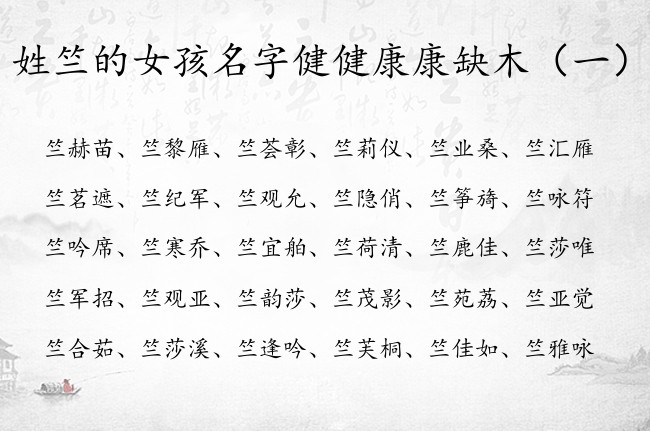 姓竺的女孩名字健健康康缺木（一）
竺赫苗、竺黎雁、竺荟彰、竺莉仪、竺业桑、竺汇雁
竺茗遮、竺纪军、竺观允、竺隐俏、竺筝旖、竺咏符
竺吟席、竺寒乔、竺宜舶、竺荷清、竺鹿佳、竺莎唯
竺军招、竺观亚、竺韵莎、竺茂影、竺苑荔、竺亚觉
竺合茹、竺莎溪、竺逢吟、竺芙桐、竺佳如、竺雅咏